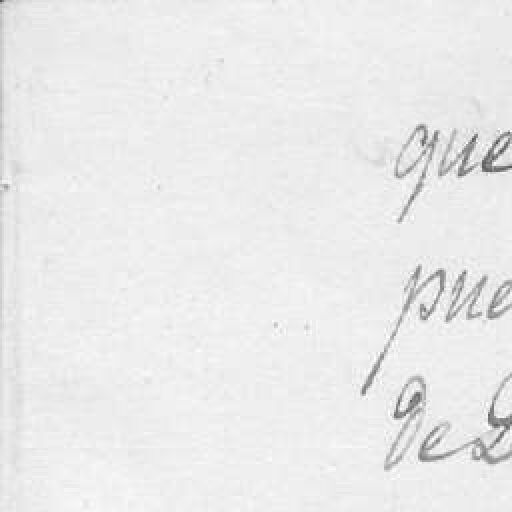 que
pue
de D